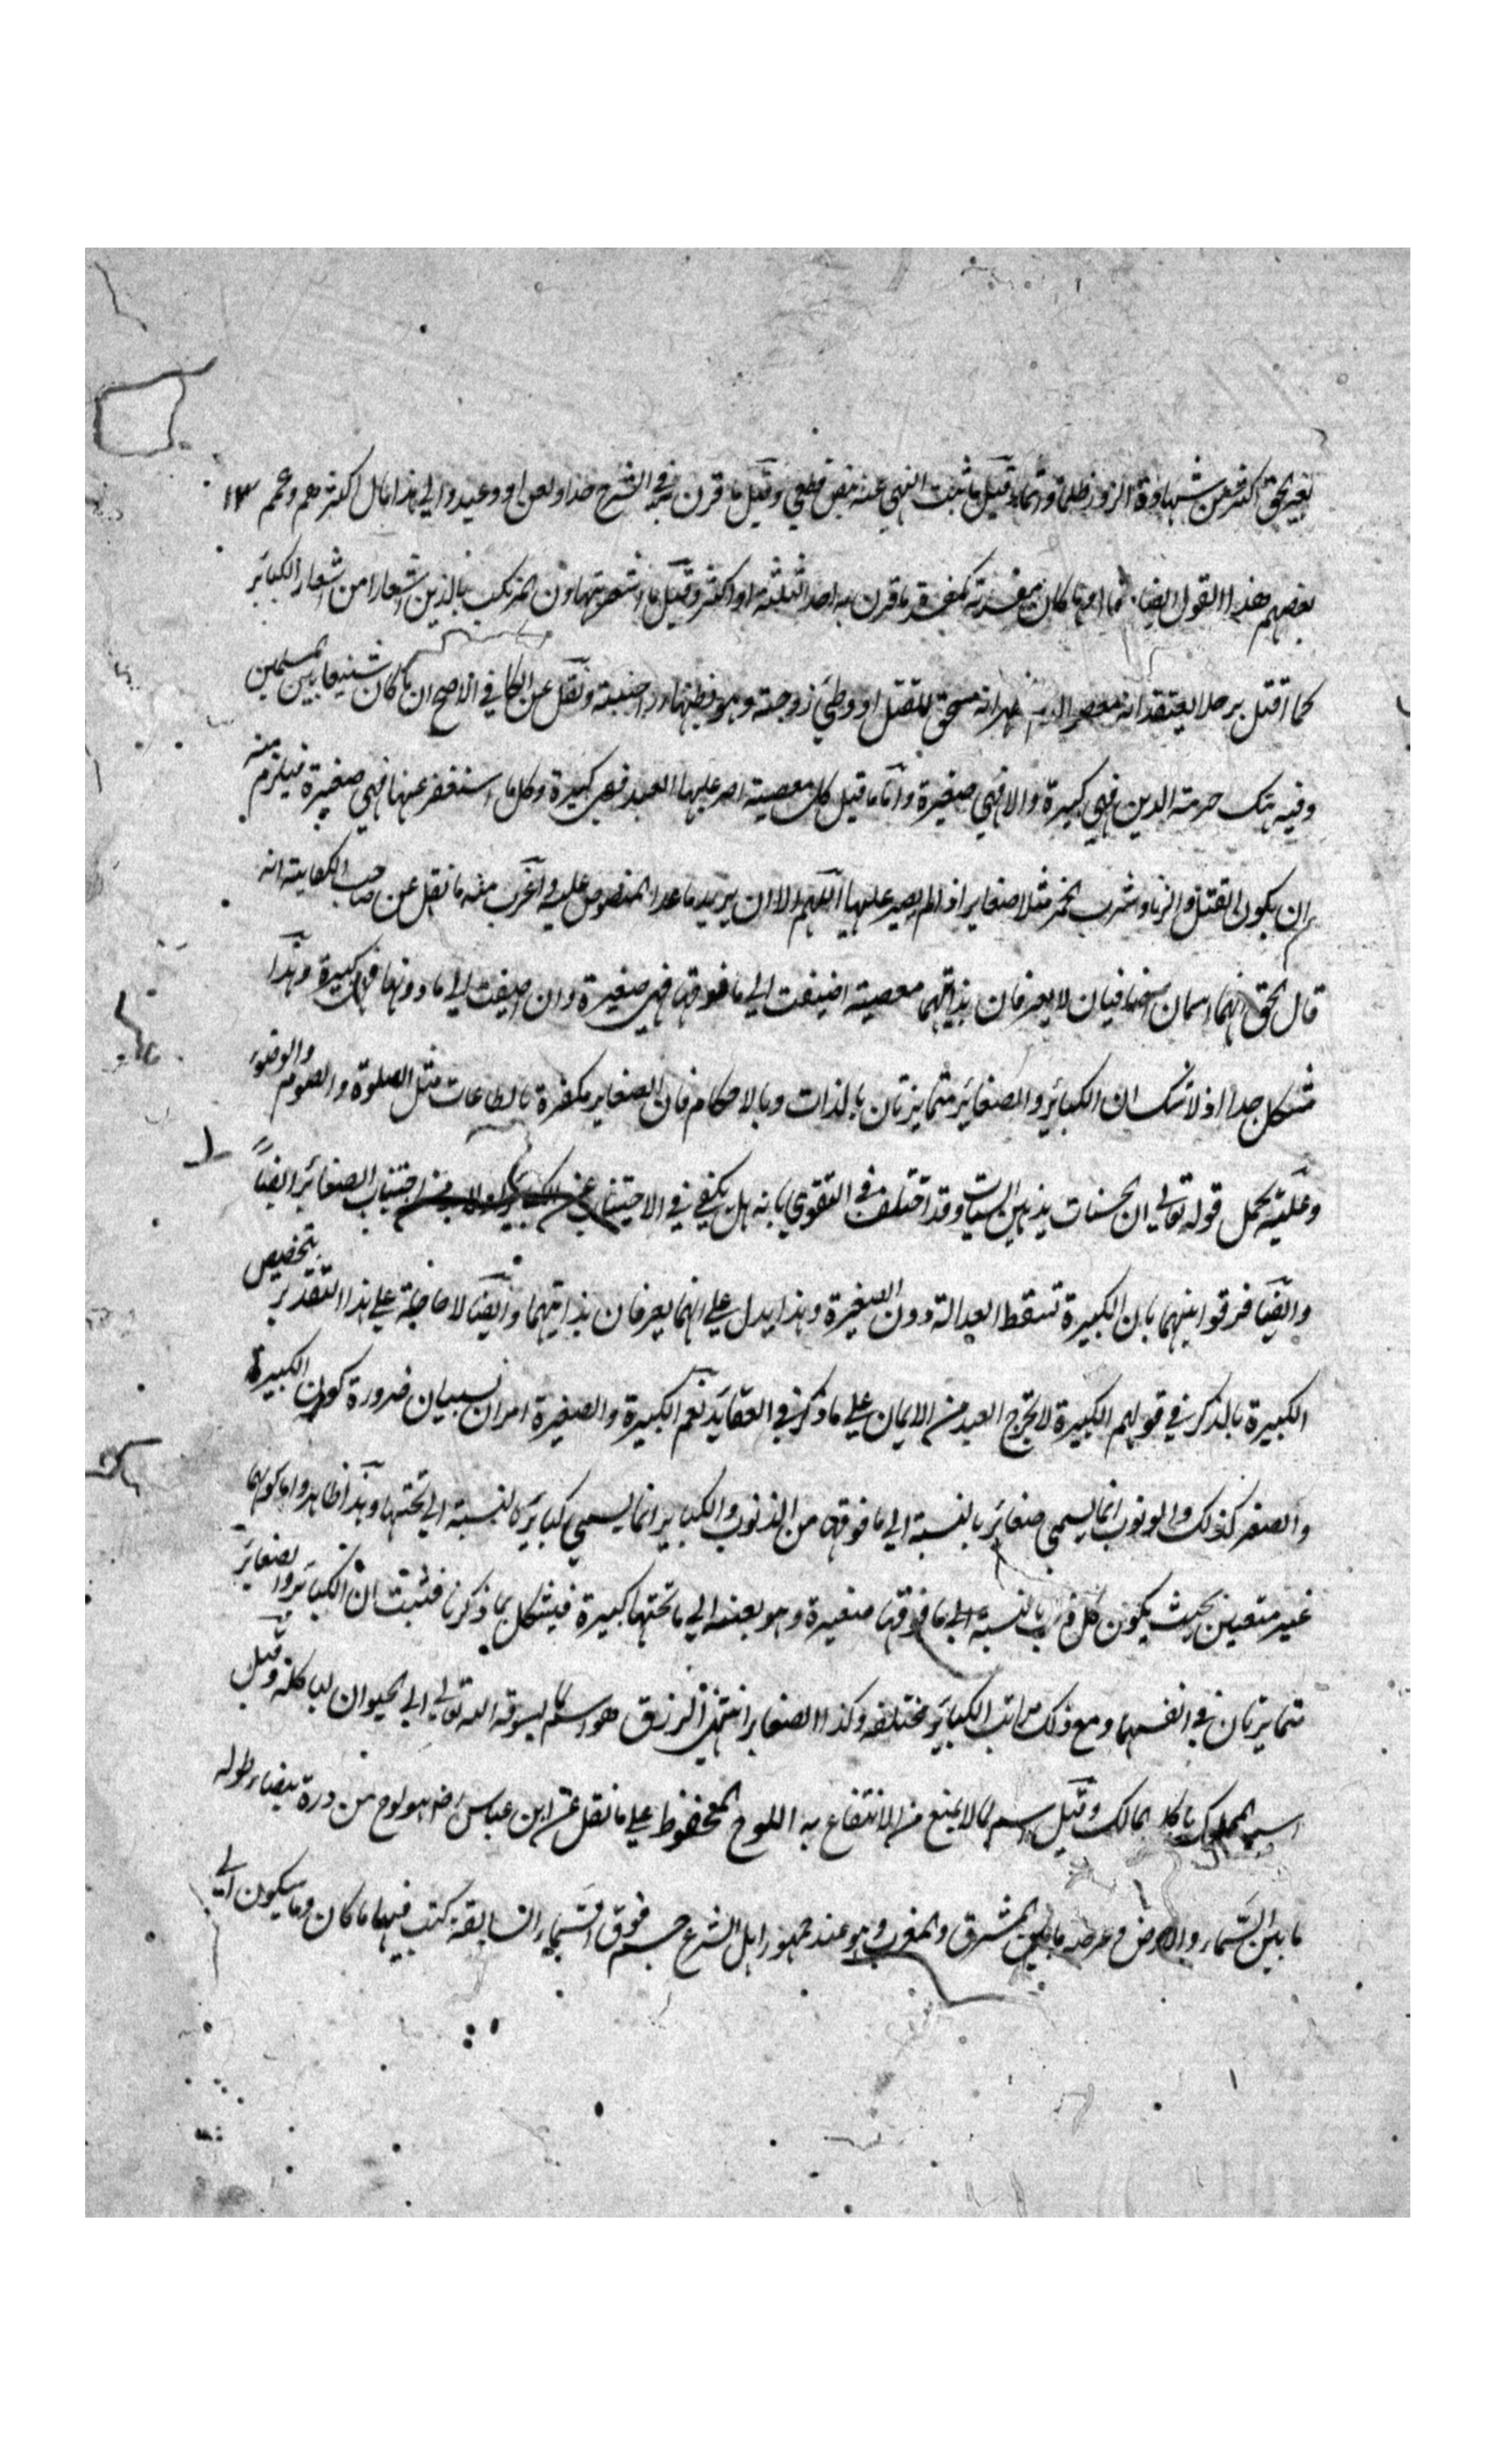 بغير حق اكثر من شهادة الزور ظلما وقيل ما ثبت النهي عنه بنص قطعي وقيل ما قرن به في الشرع حدا ولعن او وعيد والي هذا مال اكثرهم وعمم
بعضهم هذا القول ايضا ما كان مفسدته كمفسدة ما قرن به احد الثلثة او اكثر وقيل ما اشعر بتهاون المرتكب بالدين اشعارا من اشعار الكبائر
كما قتل رجلا يعتقد انه معصوم الدم فظهر انه مستحق للقتل او وطئ زوجته وهو يظنها اجنبية ونقل عن الكافي الاصح ان ما كان شنيعا بين المسلمين
وفيه هتك حرمة الدين فهي كبيرة والا فهي صغيرة واما ما قيل كل معصية اصر عليها العبد فهي كبيرة وكل ما استغفر عنها فهي صغيرة فيلزم منه
ان يكون القتل والزنا وشرب الخمر مثلا صغاير اذا لم يصر عليها اللهم الا ان يريد ما عدا المنصوص عليه واغرب منه ما نقل عن صاحب الكفاية انه
قال الحق انهما اسمان اضافيان لا يعرفان بذاتهما معصية اضيفت الي ما فوقها فهي صغيرة وان اضيفت الي ما دونها فهي كبيرة وهذا
مشكل جدا اذ لا شك ان الكبائر والصغائر متمايزتان بالذات وبالاحكام فان الصغاير مكفرة بالطاعات مثل الصلوة والصوم والوضوء
وعليه يحمل قوله تعالي ان الحسنات يذهبن السيات وقد اختلف في التقوي بانه هل يكفي في الاجتناب عن الكبائر اجتناب الصغائر ايضاً
وايضا فرقوا بينهما بان الكبيرة تسقط العدالة دون الصغيرة وهذا يدل علي انهما يعرفان بذاتهما وايضا لا حاجة علي هذا التقدير بتخصيص
الكبيرة بالذكر في قولهم الكبيرة لا تخرج العبد من الايمان علي ما ذكر في العقايد نعم الكبيرة والصغيرة امران نسبيان ضرورة كون الكبيرة
والصغر كذلك والذنوب انما يسمي صغائر بالنسبة الي ما فوقها من الذنوب والكبائر انما يسمي كبائر بالنسبة الي تحتها وهذا ظاهر واما كونهما
غير متعينين بحيث يكون كل ذنب بالنسبة الي ما فوقها صغيرة وهو بعينه الي ما تحتها كبيرة فيشكل بما ذكرنا فثبت ان الكبائر والصغائر
متمايزتان في انفسهما ومع ذلك مراتب الكبائر مختلفه وكذا الصغاير انتهي الرزق هو اسم لما يسوقه الله تعالي الي الحيوان لياكله وقيل
اسم لمملوك ياكله المالك وقيل اسم لما لا يمنع من الانتفاع به اللوح المحفوظ علي ما نقل عن ابن عباس رضه هو لوح من درة بيضاء طوله
ما بين السماء والارض وعرضه ما بين المشرق والمغرب وهو عند جمهور اهل الشرع جسم فوق السماء السابعة كتب فيها ما كان وما سيكون الي